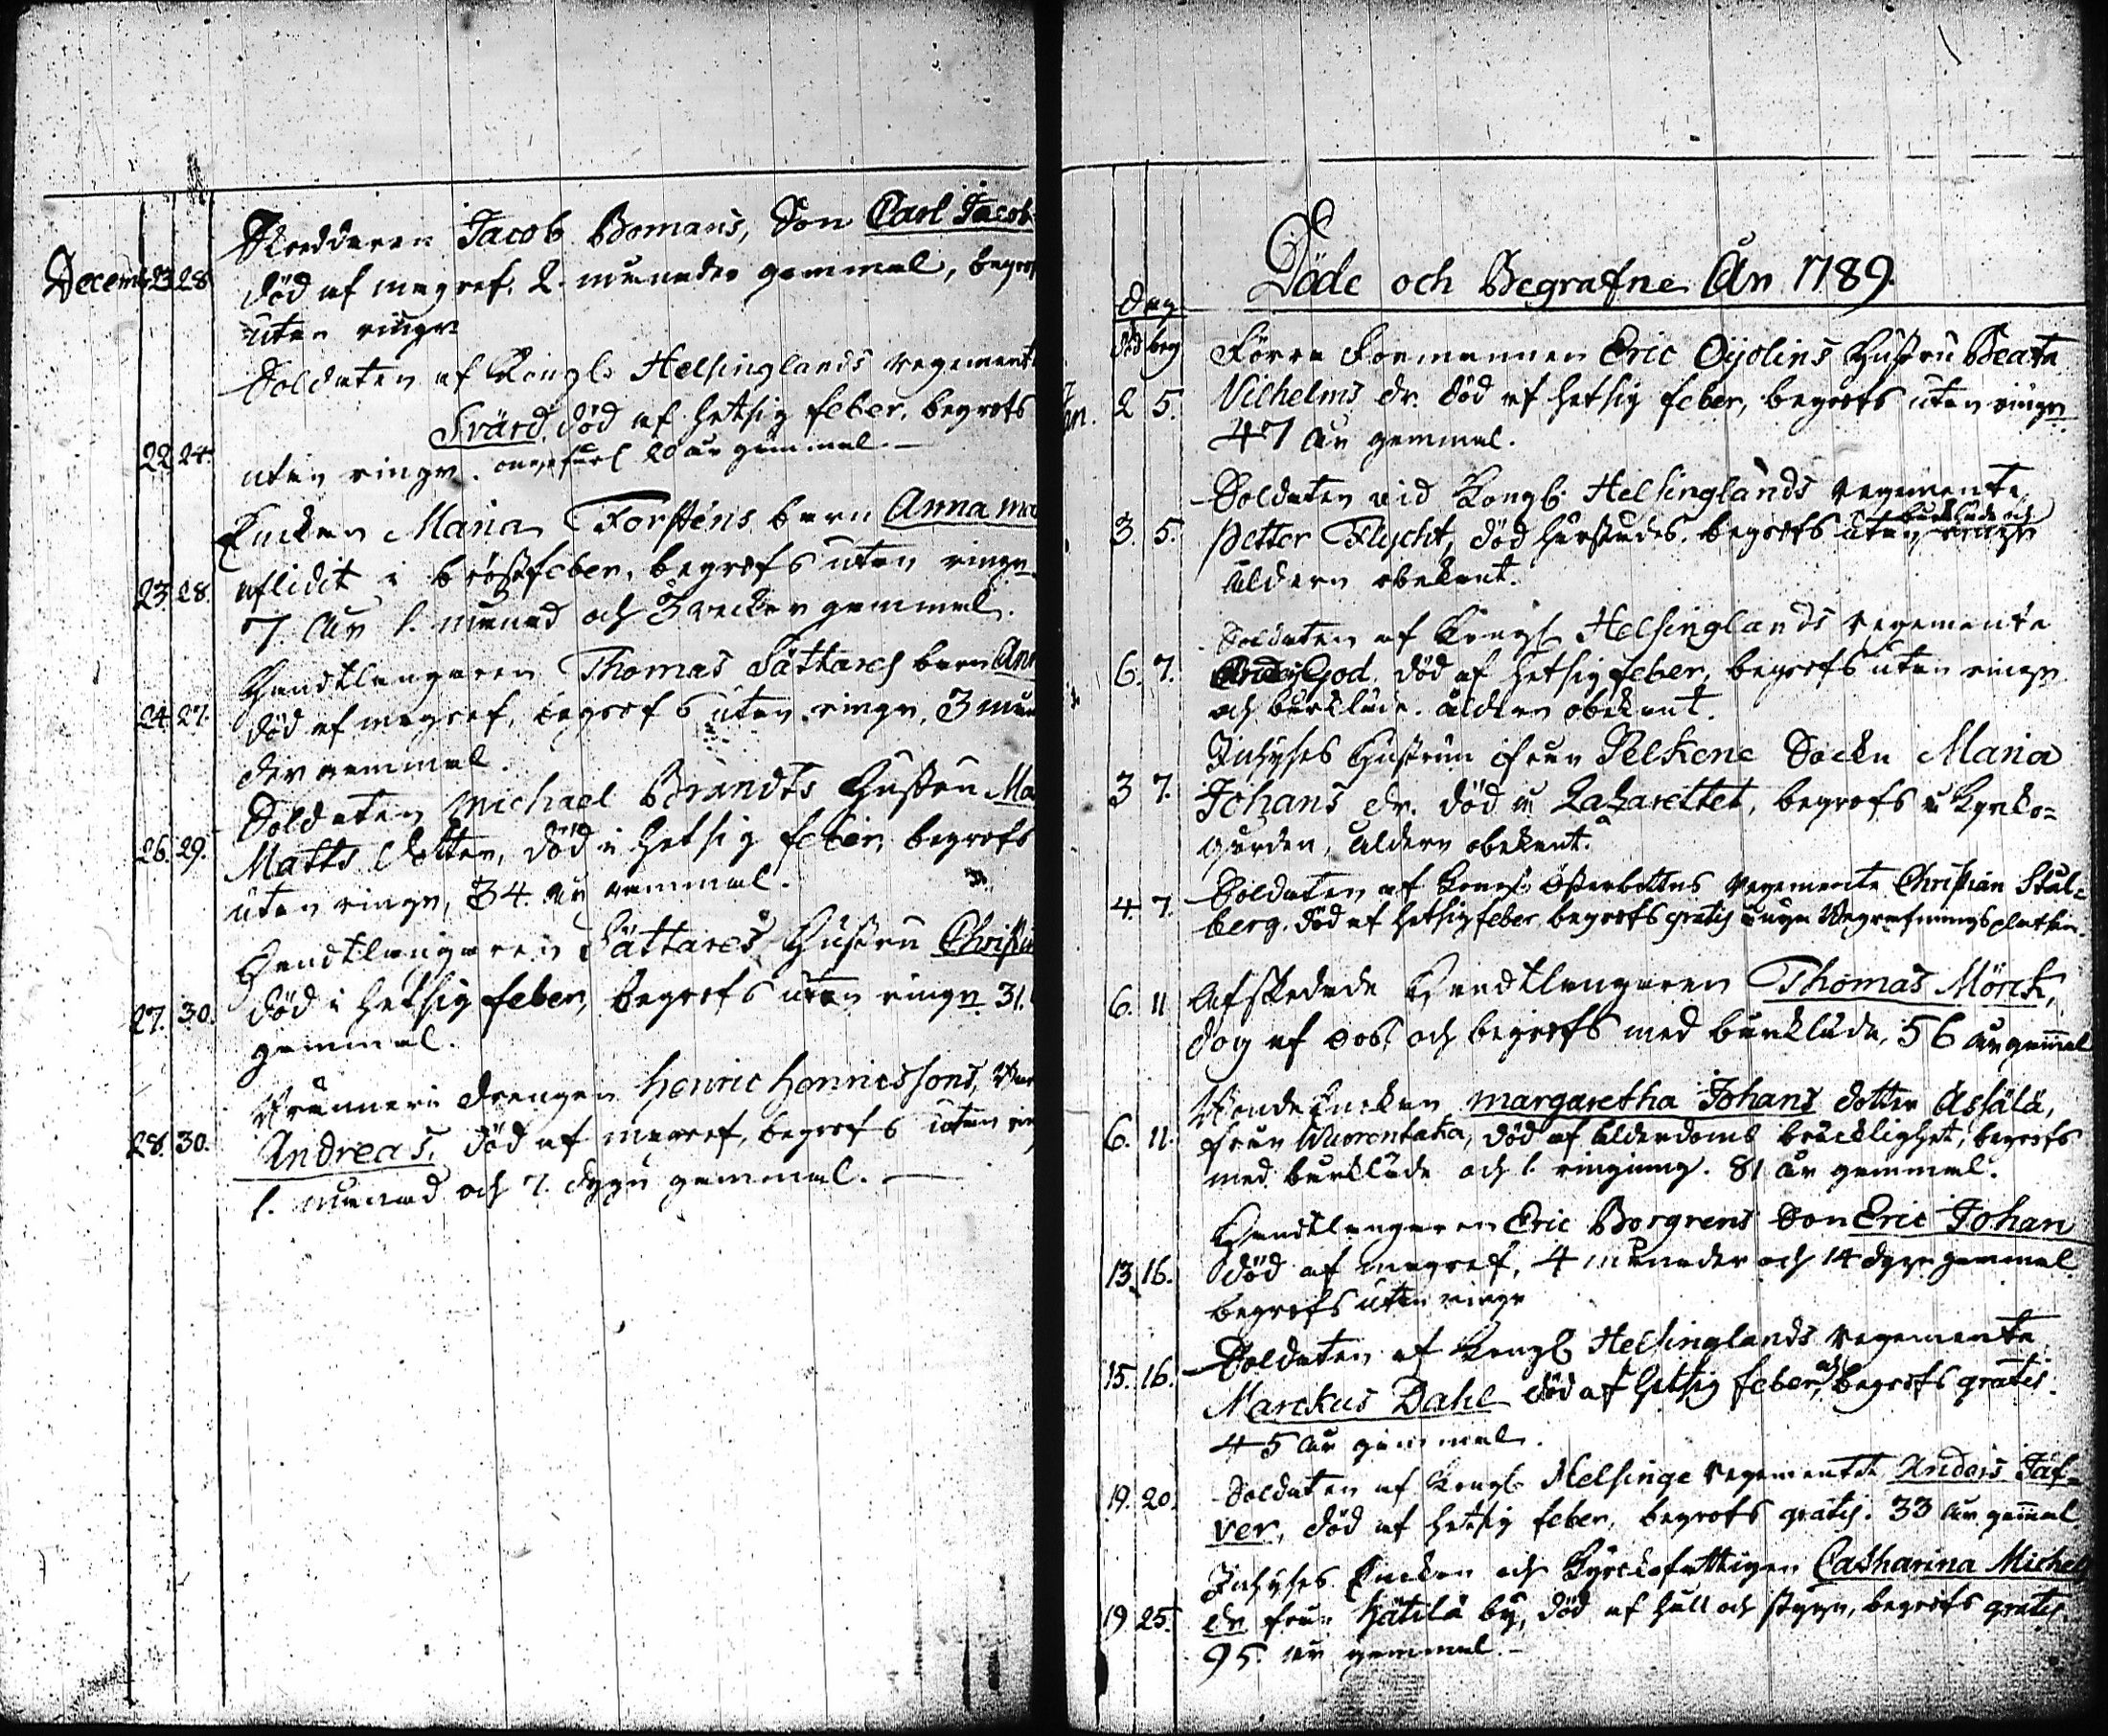 Skreddaren Jacob Bomans, Son Carl Jacob
Decemb. 23 28 död af magref. 2. månader gammal, begrof
utan ringn
Soldaten af Kongl. Helsinglands regemente
Svärd. död af hetsig feber, begrofs
22 24. utan ringn. ongefärl 20 år gammal.
Enckan Maria Forsténs barn Anna
23. 28. aflidit i bröstfeber, begrofs utan ringn.
7 år 1. månad och 3 veckor gammal.
Handtlangaren Thomas Sättares barn
24. 27. död af magref, begrofs utan ringn, 3
der gammal.
Soldaten Michael Brandts Hustru
26. 29. Matts dotter, död i hetsig feber, begrofs
utan ringn, 34. år gammal.
Handtlangaren Sättares Hustru
27. 30. död i hetsig feber, begrofs utan ringn. 31.
gammal.
drengen Henric Henricssons,
28. 30. Andreas, död af magref, begrofs utan
1. månad och 7. dygn gammal.
Döde och Begrafne År 1789.
dag
död beg Förra Formannen Eric Öijolins Hustru Beata
2 5. Vilhelms dr. död af hetsig feber, begrofs utan ringn
47 år gammal.
Soldaten vid Kongl. Helsinglands regemente
bårkläde och
3. 5. Petter Flycht, död hurstades. begrofs utan ringn
åldern obekant.
Soldaten af Kongl. Helsinglands regemente
6. 7. God. död af hetsig feber, begrofs utan ringn
och bårkläde. åldren obekant.
Inhyses Hustrun ifrån Pelkene Sockn Maria
3 7. Johans dr. död i Lazarettet, begrofs i Kyrko=
gården, åldern obekant.
Soldaten af Kongl. Österbottns regemente Christian Stål=
4. 7. berg. död af hetsig feber, begrofs gratis å nya Begrafningsplatsen.
6. 11 Afskedade Handtlangaren Thomas Mörck,
dog af och begrofs med bårkläde, 56 år gammal
Bonde Enckan Margaretha Johans dotter Assälä,
6. 11. från Wuorentaka, död af ålderdoms bräcklighet, begrofs
med bårkläde och 1. ringning. 81 år gammal.
Handtlangaren Eric Borgrens Son Eric Johan
13. 16. död af magref, 4 månader och 14 dygn gammal.
begrofs utan ringn
Soldaten af Kongl. Helsinglands regemente
15. 16. Marckus Dahl död af hetsig feber, och begrofs gratis.
45 år gammal.
Soldaten af Kongl. Helsinge regemente Anders Täf=
19. 20. ver, död af hetsig feber, begrofs gratis. 33 år gammal.
Inhyses Enckan och Kyrckofattigen Catharina Michels
19 25. dr från Hätilä by, död af håll och styng, begrofs gratis
95. år gammal.